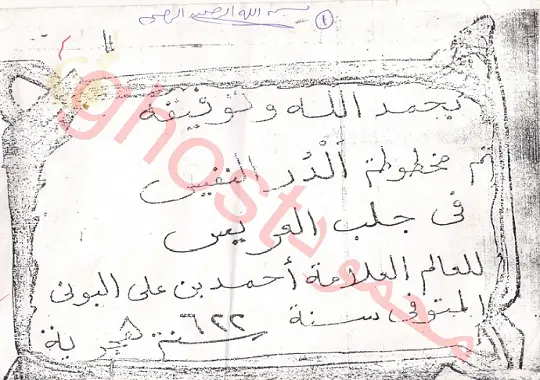 بسم الله الرحمن الرحيم
١
بحمد الله وتوفيقه
تم مخطوطة الدُر النفيس
فى جلب العريس
للعالم العلامة أحمد بن على البونى
المتوفى سنة ٦٢٢ سنة هجرية
محمود ghost